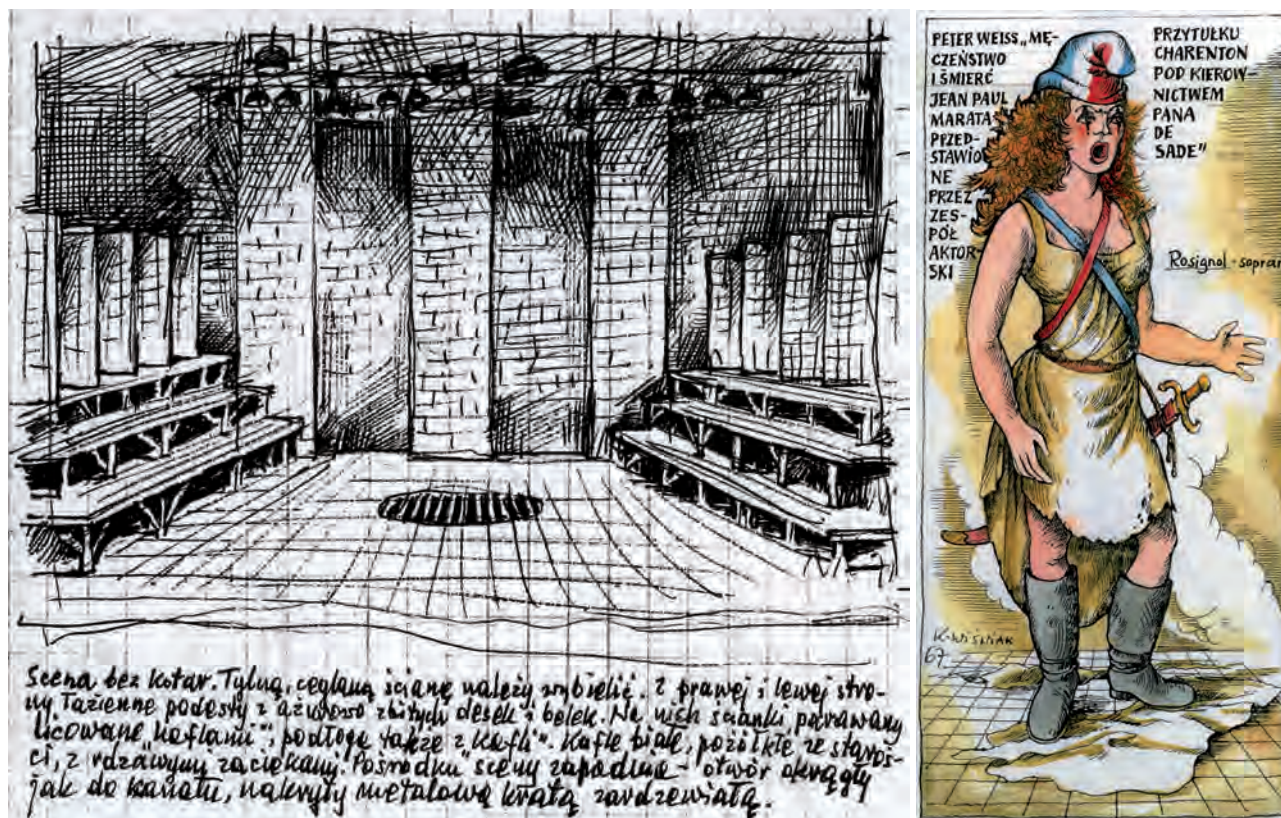 Scena bez kotar. Tylną, ceglaną ścianę należy wybielić. Z prawej i lewej stro-
ny łazienne podesty z ażurowo zbitych desek i belek. Na nich ścianki parawany
licowane "kaflami", podłoga także z "kafli". Kafle białe, pożółkłe ze staroś-
ci, z rdzawymi zaciekami. Pośrodku sceny zapadnia - otwór okrągły
jak do kanału, nakryty metalową kratą zardzewiałą.
PETER WEISS „MĘ-
CZEŃSTWO
I ŚMIERĆ
JEAN PAUL
MARATA
PRZED-
STAWIO
NE
PRZEZ
ZES-
PÓŁ
AKTOR-
SKI
PRZYTUŁKU
CHARENTON
POD KIEROW-
NICTWEM
PANA
DE
SADE"
Rosignol - sopran
K. WIŚNIAK
67